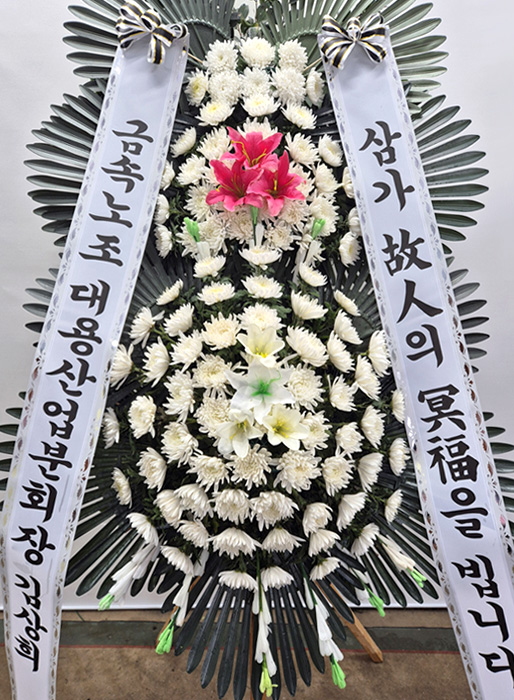 금속노조 대용산업분회장 김상희
삼가 故人의 冥福을 빕니다